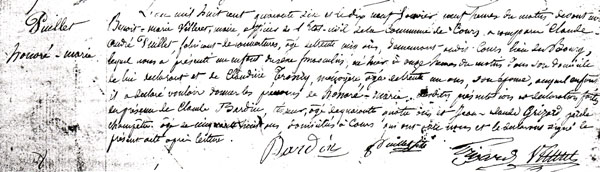 Puillet
honoré-marie
L'an mil huit cent quarante six et le dix neuf Janvier neuf heures du matin devant nous
Benoit-marie Villeret maire, officier de l'Etat civil de la Commune de Cours, a comparu Claude
André Puillet fabricant de couvertures, âgé de trente six ans, demeurant audit Cours lieu du Bourg,
lequel nous a présenté un enfant du sexe masculin, né hier à onze heures du matin dans son domicile
de lui déclarant et de Claudine ménagère âgée de trente un ans, son épouse, auquel enfant
il a déclaré vouloir donner les prénoms de honoré-marie, lesdites présentation et déclaration faites
en présence de Claude Bardin âgé de quarante quatre ans et Jean-claude Grizard garde
champêtre âgé de ans domiciliés à Cours qui ont avec nous et le déclarant signé le
présent acte après lecture.
Bardin Puillet Grizard